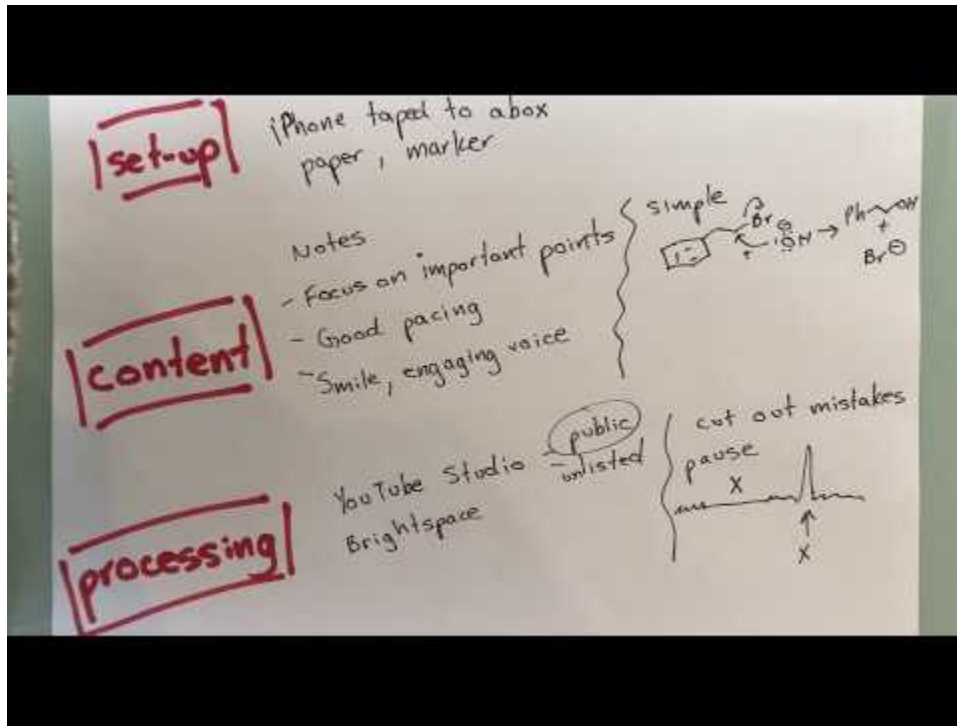 set-up
iPhone taped to a box
paper, marker
content
Notes
- Focus on important points
- Good pacing
- Smile, engaging voice
simple
Br
⊖
:ÖH → Ph OH
+
Br⊖
processing
YouTube Studio - public
- unlisted
Brightspace
cut out mistakes
pause
X
X